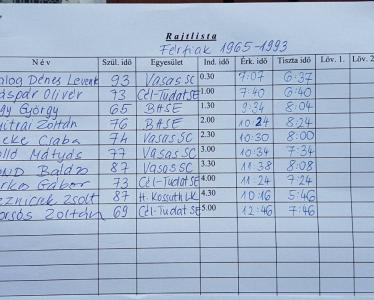 Rajtlista
Férfiak 1965-1993
Név Szül. idő Egyesület Ind. idő Érk. idő Tiszta idő Löv. 1. Löv. 2
Dénes Levente 93 Vasas SC 0.30 7:07 6:37
Olivér 73 Cél-Tudat SE 1.00 7:40 6:40
György 65 BASE 1.30 9:34 8:04
Zoltán 76 BASE 2.00 10:24 8:24
Csaba 74 Vasas SC 2.30 10:30 8:00
Mátyás 77 Vasas SC 3.00 10:34 7:34
87 Vasas SC 3.30 11:38 8:08
Gábor 73 Cél-Tudat SE 4.00 11:24 7:24
Zsolt 87 H. Kossuth LK 4.30 10:16 5:46
Zoltán 69 Cél-Tudat SE 5.00 12:46 7:46